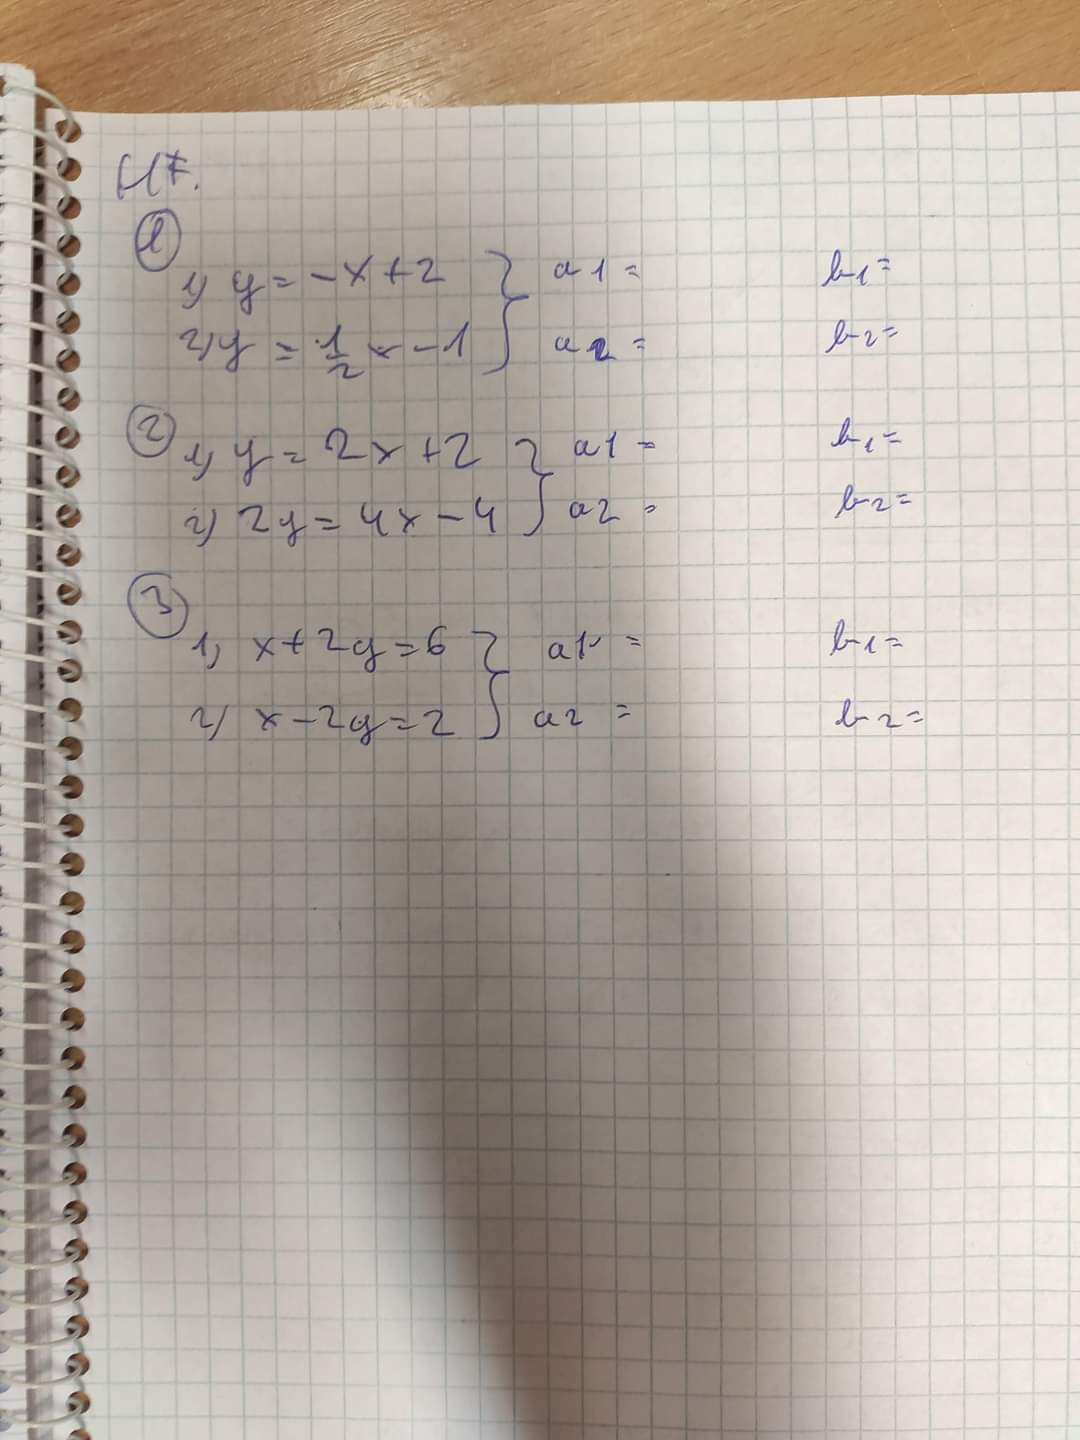 H7.
①
1) y = -x + 2 } a1 = b1 =
2) y = 1/2 x - 1 a2 = b2 =
②
1) y = 2x + 2 } a1 = b1 =
2) 2y = 4x - 4 a2 = b2 =
③
1) x + 2y = 6 } a1 = b1 =
2) x - 2y = 2 a2 = b2 =